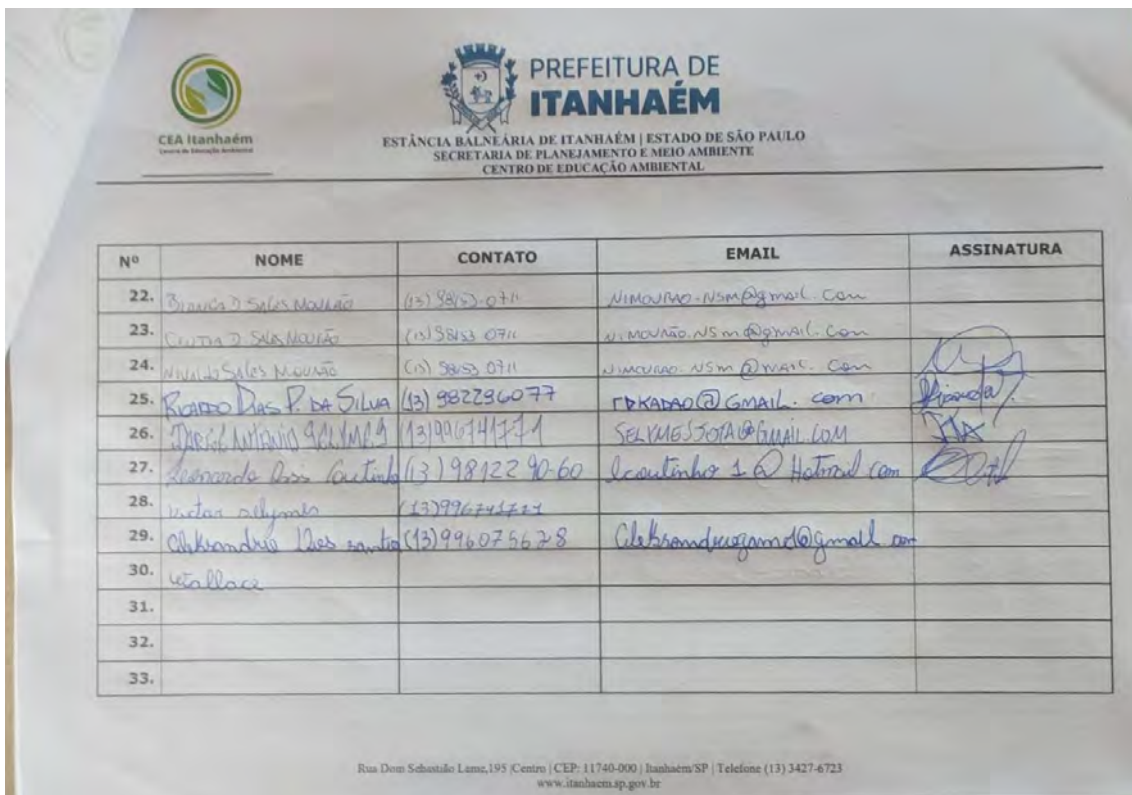 PREFEITURA DE
ITANHAÉM
CEA Itanhaém
Centro de Educação Ambiental
ESTÂNCIA BALNEÁRIA DE ITANHAÉM | ESTADO DE SÃO PAULO
SECRETARIA DE PLANEJAMENTO E MEIO AMBIENTE
CENTRO DE EDUCAÇÃO AMBIENTAL
Nº NOME CONTATO EMAIL ASSINATURA
22. BIANCA D SALES MOURÃO (13) 98153-0711 NIMOURAO.NSM@gmail.com
23. D SALES MOURÃO (13) 98153 0711 NIMOURÃO.NSM@gmail.com
24. NIVALDO SALES MOURÃO (13) 98153 0711
25. RICARDO DIAS P. DA SILVA (13) 982296077 @GMAIL.com
26. ANTONIO SELYMES (13)996741771 SELYMESJOTA@GMAIL.COM
27. Leonardo Coutinho (13) 98122 90-60 lcoutinho1@Hotmail com
28. victor selymes
29. santos (13) 996075678
30. wallace
31.
32.
33.
Rua Dom Sebastião Leme,195 |Centro | CEP: 11740-000 | Itanhaém/SP | Telefone (13) 3427-6723
www.itanhaem.sp.gov.br